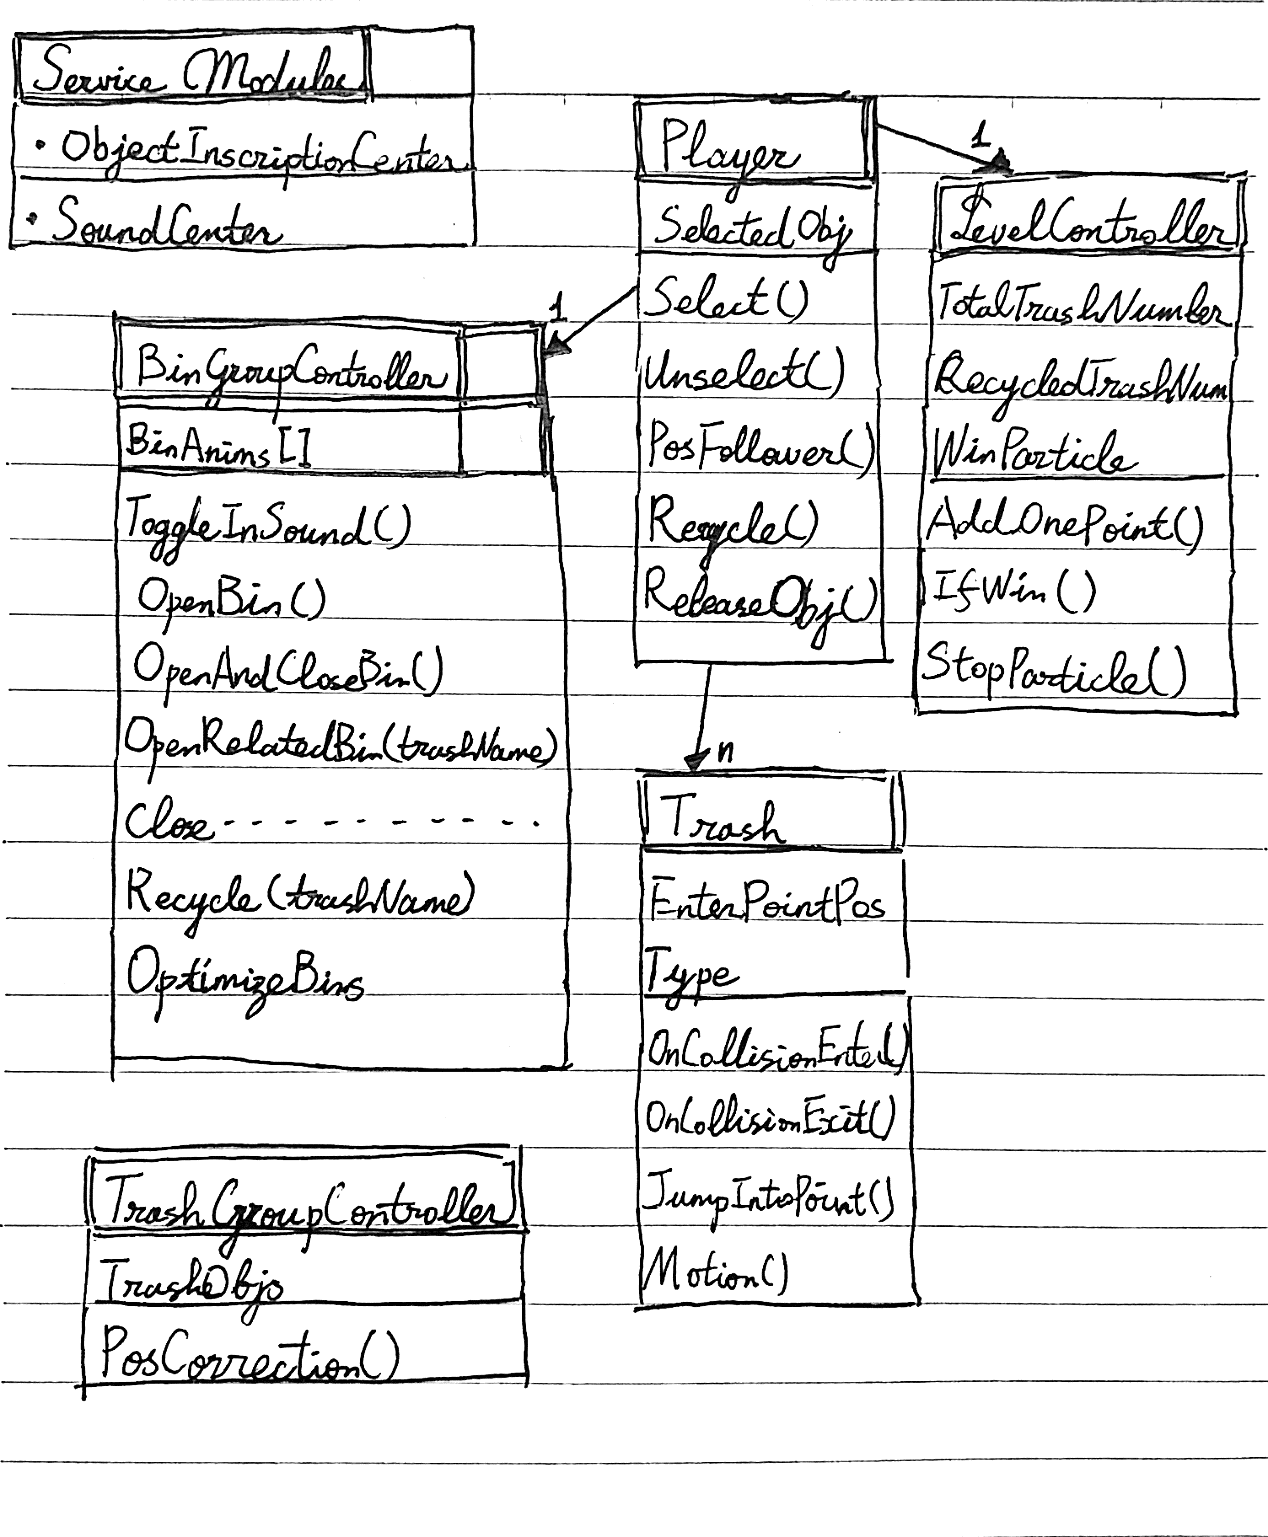 Service Modules
• ObjectInscriptionCenter
• SoundCenter
Player
SelectedObj
Select()
Unselect()
PosFollower()
Recycle()
ReleaseObj()
1
LevelController
TotalTrashNumber
RecycledTrashNum
WinParticle
AddOnePoint()
IfWin()
StopParticle()
1
BinGroupController
BinAnims[]
ToggleInSound()
OpenBin()
OpenAndCloseBin()
OpenRelatedBin(trashName)
Close - - - - - - - - - -
Recycle(trashName)
OptimizeBins
n
Trash
EnterPointPos
Type
OnCollisionEnter()
OnCollisionExit()
JumpIntoPoint()
Motion()
TrashGroupController
TrashObjs
PosCorrection()